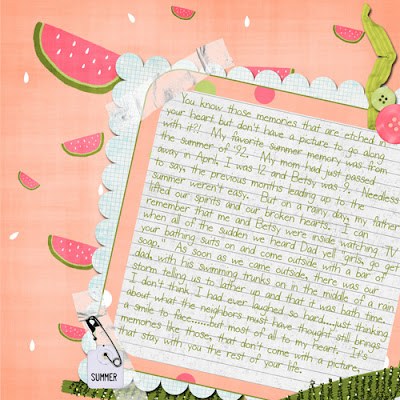 You know those memories that are etched in
your heart but don't have a picture to go along
with it?! My favorite summer memory was from
the summer of '92. My mom had just passed
away in April. I was 12 and Betsy was 9. Needless
to say, the previous months leading up to the
summer weren't easy. But on a rainy day, my father
lifted our spirits and our broken hearts. I can
remember that me and Betsy were inside watching TV
when all of the sudden we heard Dad yell "girls, go get
your bathing suits on and come outside with a bar of
soap." As soon as we came outside, there was our
dad, with his swimming trunks on in the middle of a rain
storm telling us to lather up and that it was bath time.
I don't think I had ever laughed so hard....just thinking
about what the neighbors must have thought still brings
a smile to face......but most of all to my heart. It's
memories like those, that don't come with a picture,
that stay with you the rest of your life.
SUMMER